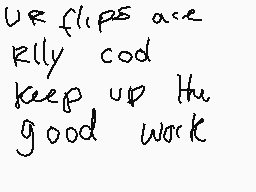 UR flips are
Rlly cod
keep up the
good work